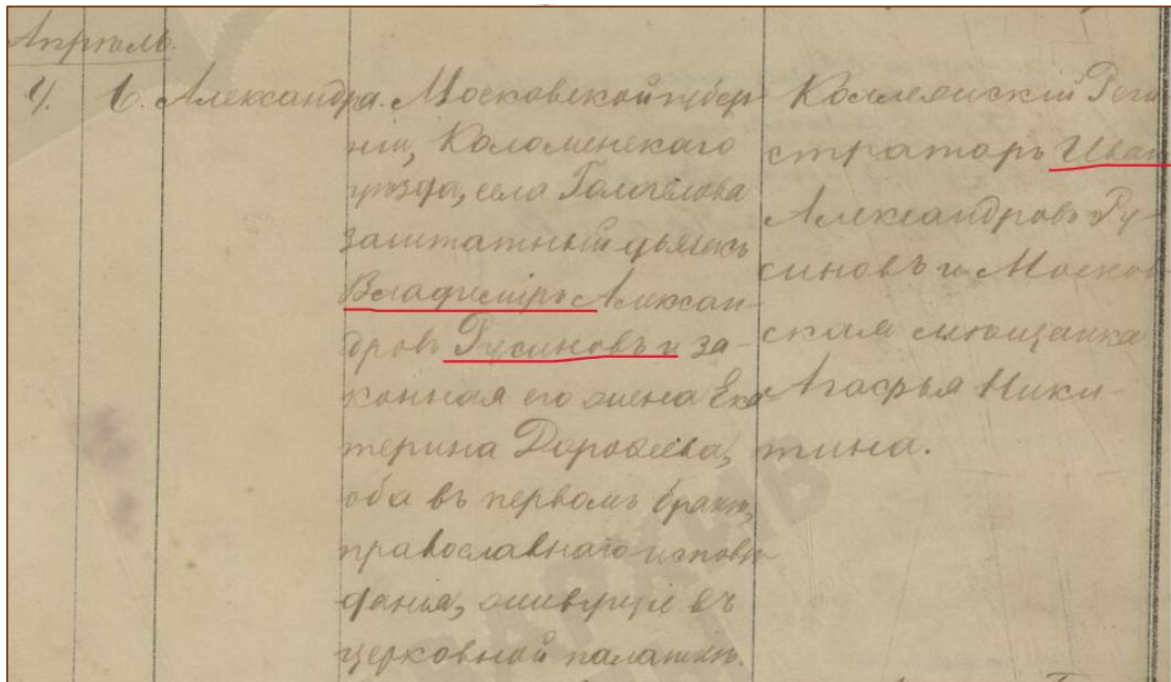 Апрѣль.
4. 6. Александра.
Московской губер
ніи, Коломенскаго
уѣзда, села
заштатный дьячекъ
Владиміръ Алексан-
дровъ Русиновъ и за-
конная его жена Ека
терина Дороѳеева,
оба въ первомъ бракѣ,
православнаго исповѣ
данія, живущіе въ
церковной палаткѣ.
Коллежскій Реги
страторъ Иван
Александровъ Ру-
синовъ и Москов
ская мѣщанка
Агафья Ники-
тина.